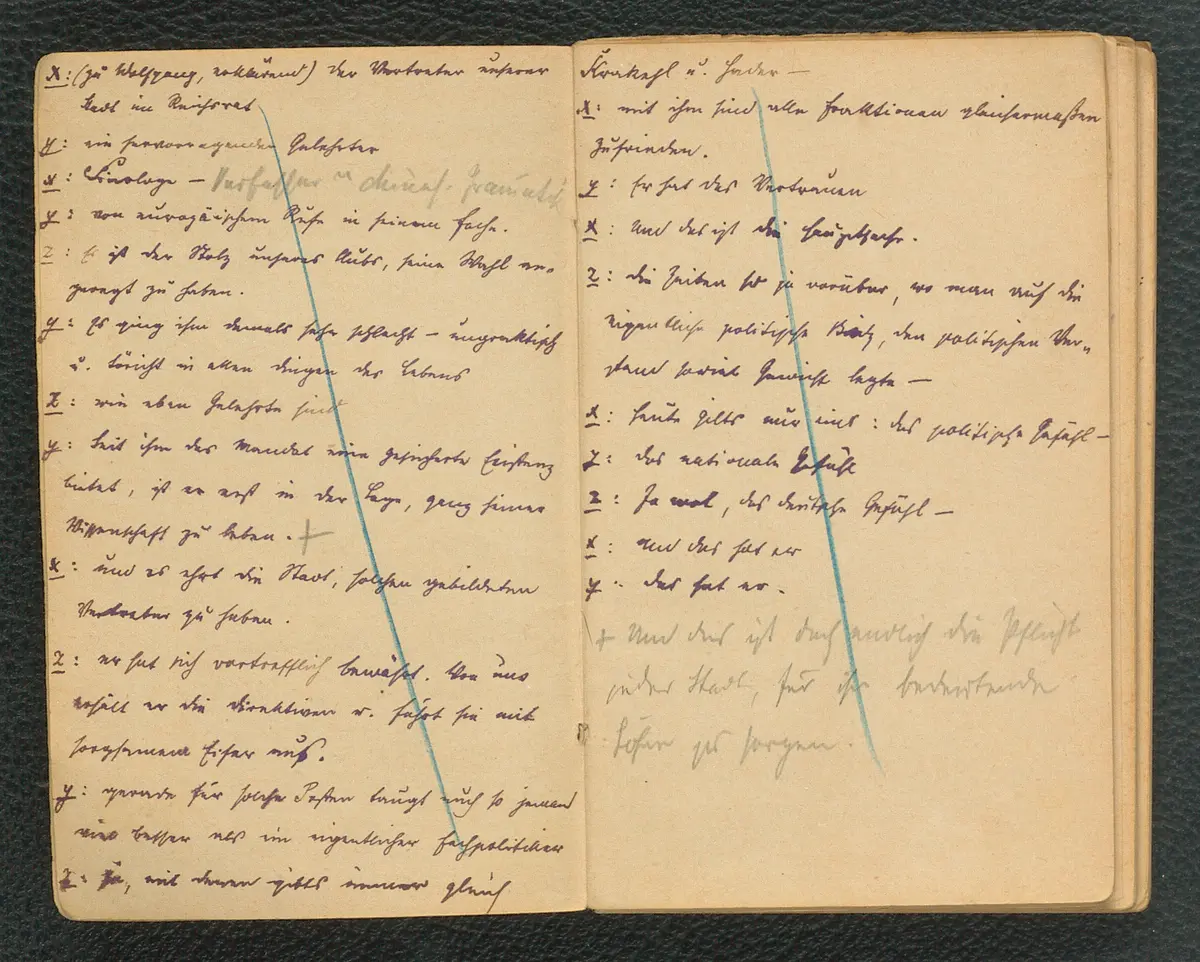 X: (zu Wolfgang, erklärend) der Vertreter unserer
Stadt im Reichsrat
y: ein hervorragender Gelehrter
x: Sinologe – Verfasser chines. Grammatik
y: von europäischem Rufe in seinem Fache.
z: Es ist der Stolz unseres Klubs, seine Wahl an-
geregt zu haben.
y: Es ging ihm damals sehr schlecht – unpraktisch
u. töricht in allen Dingen des Lebens
z: wie eben Gelehrte sind
y: Seit ihm das Mandat eine gesicherte Existenz
bietet, ist er erst in der Lage, ganz seiner
Wissenschaft zu leben. +
x: und es ehrt die Stadt, solchen gebildeten
Vertreter zu haben.
z: er hat sich vortrefflich bewährt. Von uns
erhält er die Direktiven u. führt sie mit
sorgsamem Eifer aus.
y: gerade für solche Posten taugt auch so jemand
viel besser als ein eigentlicher Fachpolitiker
z: Ja, mit denen gibts immer gleich
Krakehl u. Hader –
x: mit ihm sind alle Fraktionen gleichermaßen
zufrieden.
y: Er hat das Vertrauen
x: Und das ist die Hauptsache.
z: die Zeiten sind ja vorüber, wo man auf die
eigentliche politische den politischen Ver-
stand soviel Gewicht legte –
x: heute gilts nur eins: das politische Gefühl –
y: das nationale Gefühl
z: Ja wol, das deutsche Gefühl –
x: und das hat er
y: das hat er.
+ Und das ist doch endlich die Pflicht
jeder Stadt, für ihre bedeutenden
Söhne zu sorgen.